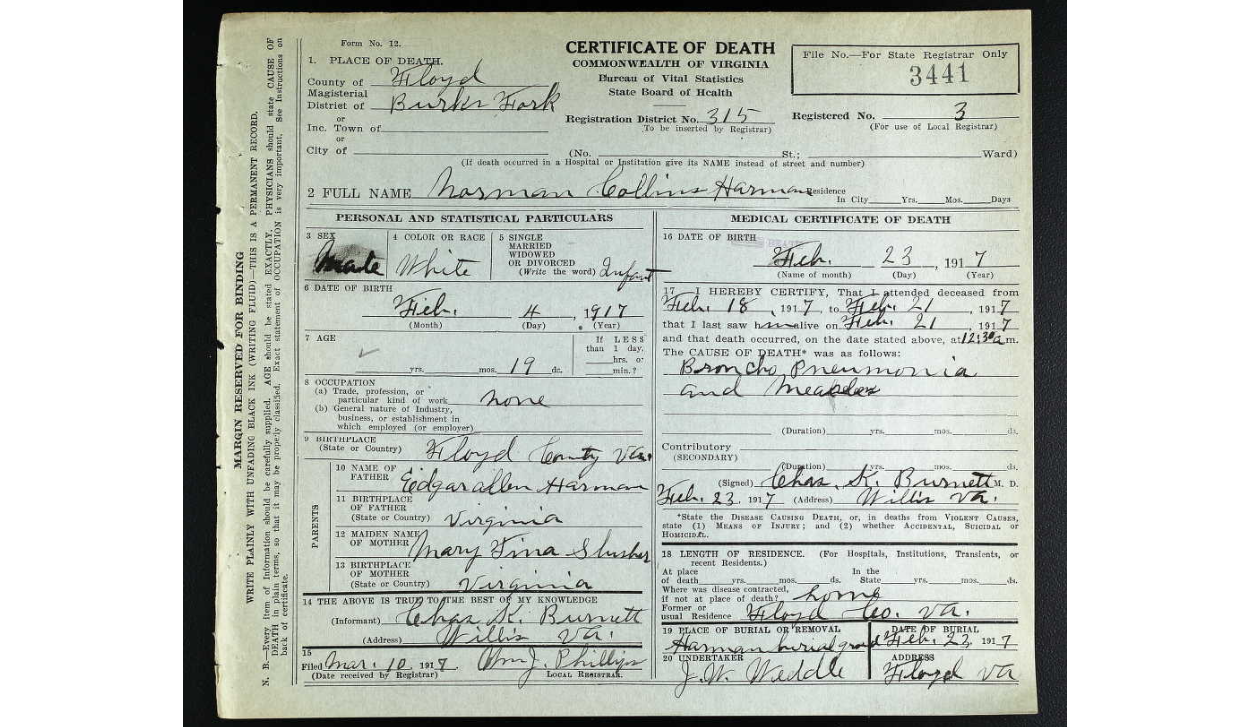 Form No. 12.
CERTIFICATE OF DEATH
COMMONWEALTH OF VIRGINIA
Bureau of Vital Statistics
State Board of Health
File No.—For State Registrar Only
3441
1. PLACE OF DEATH.
County of Floyd
Magisterial
District of Burks Fork
or
Inc. Town of
or
City of
Registration District No. 315
(To be inserted by Registrar)
Registered No. 3
(For use of Local Registrar)
(No. St.; Ward)
(If death occurred in a Hospital or Institution give its NAME instead of street and number)
2 FULL NAME Norman Collins Harman
Residence
In City Yrs. Mos. Days
PERSONAL AND STATISTICAL PARTICULARS
3 SEX
Male
4 COLOR OR RACE
White
5 SINGLE
MARRIED
WIDOWED
OR DIVORCED
(Write the word) Infant
6 DATE OF BIRTH
Feb. 4, 1917
(Month) (Day) (Year)
7 AGE
yrs. mos. 19 ds.
If LESS
than 1 day,
hrs. or
min.?
8 OCCUPATION
(a) Trade, profession, or
particular kind of work none
(b) General nature of Industry,
business, or establishment in
which employed (or employer)
9 BIRTHPLACE
(State or Country) Floyd County Va.
PARENTS
10 NAME OF
FATHER Edgar Allen Harman
11 BIRTHPLACE
OF FATHER
(State or Country) Virginia
12 MAIDEN NAME
OF MOTHER Mary Tina Slusher
13 BIRTHPLACE
OF MOTHER
(State or Country) Virginia
14 THE ABOVE IS TRUE TO THE BEST OF MY KNOWLEDGE
(Informant) Chas. K. Burnett
(Address) Willis Va.
15
Filed Mar. 10, 1917 Wm J. Phillips
(Date received by Registrar) LOCAL REGISTRAR.
MEDICAL CERTIFICATE OF DEATH
16 DATE OF BIRTH
DEATH
Feb. 23, 1917
(Name of month) (Day) (Year)
17 I HEREBY CERTIFY, That I attended deceased from
Feb. 18, 1917, to Feb. 21, 1917
that I last saw him alive on Feb. 21, 1917
and that death occurred, on the date stated above, at 12:30 a m.
The CAUSE OF DEATH* was as follows:
Broncho Pneumonia
and Measles
(Duration) yrs. mos. ds.
Contributory
(SECONDARY)
(Duration) yrs. mos. ds.
(Signed) Chas. K. Burnett M. D.
Feb. 23, 1917 (Address) Willis Va.
*State the DISEASE CAUSING DEATH, or, in deaths from VIOLENT CAUSES,
state (1) MEANS OF INJURY; and (2) whether ACCIDENTAL, SUICIDAL or
HOMICIDAL.
18 LENGTH OF RESIDENCE. (For Hospitals, Institutions, Transients, or
recent Residents.)
At place In the
of death yrs. mos. ds. State yrs. mos. ds.
Where was disease contracted,
if not at place of death? home
Former or
usual Residence Floyd Co. Va.
19 PLACE OF BURIAL OR REMOVAL DATE OF BURIAL
Harman burial ground Feb. 23, 1917
20 UNDERTAKER ADDRESS
J. W. Weddle Floyd Va
MARGIN RESERVED FOR BINDING
WRITE PLAINLY WITH UNFADING BLACK INK (WRITING FLUID)—THIS IS A PERMANENT RECORD.
N. B.—Every item of Information should be carefully supplied. AGE should be stated EXACTLY. PHYSICIANS should state CAUSE OF
DEATH in plain terms, so that it may be properly classified. Exact statement of OCCUPATION is very important. See Instructions on
back of certificate.